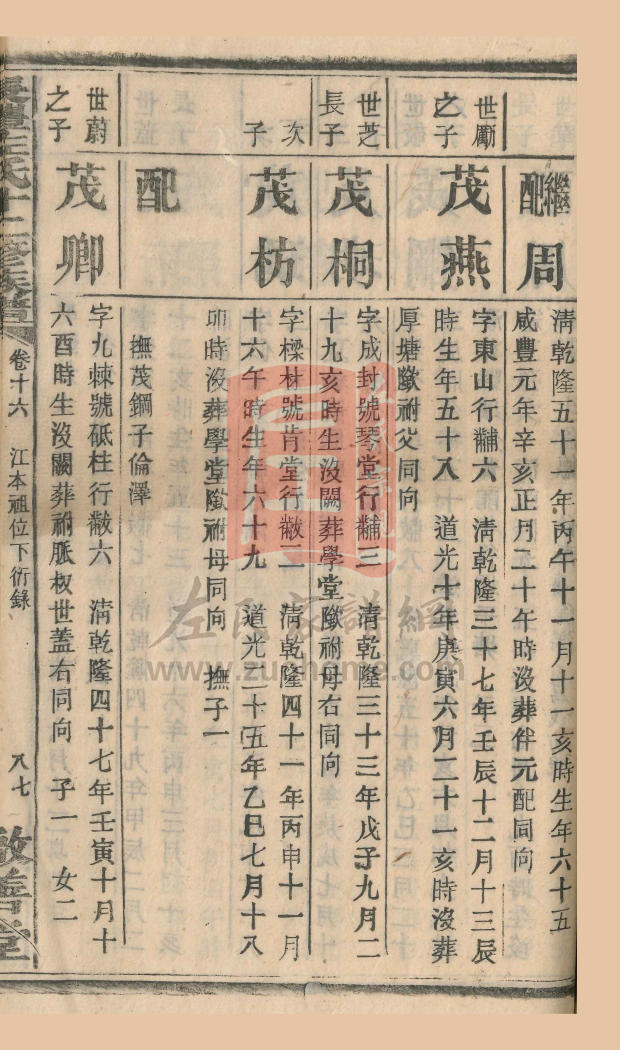 繼配周
清乾隆五十一年丙午十一月十一亥時生年六十五
咸豐元年辛亥正月二十午時沒葬伴元配同向
世勵之子
茂燕
字東山行黼六 清乾隆三十七年壬辰十二月十三辰
時生年五十八 道光十年庚寅六月二十一亥時沒葬
厚塘 祔父同向
世芝長子
茂桐
字成封號琴堂行黼三 清乾隆三十三年戊子九月二
十九亥時生沒闕葬學堂 祔母右同向
次子
茂枋
字樑材號肯堂行黻二 清乾隆四十一年丙申十一月
十六午時生年六十九 道光二十五年乙巳七月十八
卯時沒葬學堂 祔母同向 撫子一
配
撫茂鋼子倫澤
世蔚之子
茂卿
字九棘號砥柱行黻六 清乾隆四十七年壬寅十月十
六酉時生沒闕葬祔脈叔世蓋右同向 子一 女二
氏十二修族譜
卷十六 江本祖位下衍錄
八七
敦善堂
左氏家譜網
www.zuohome.com